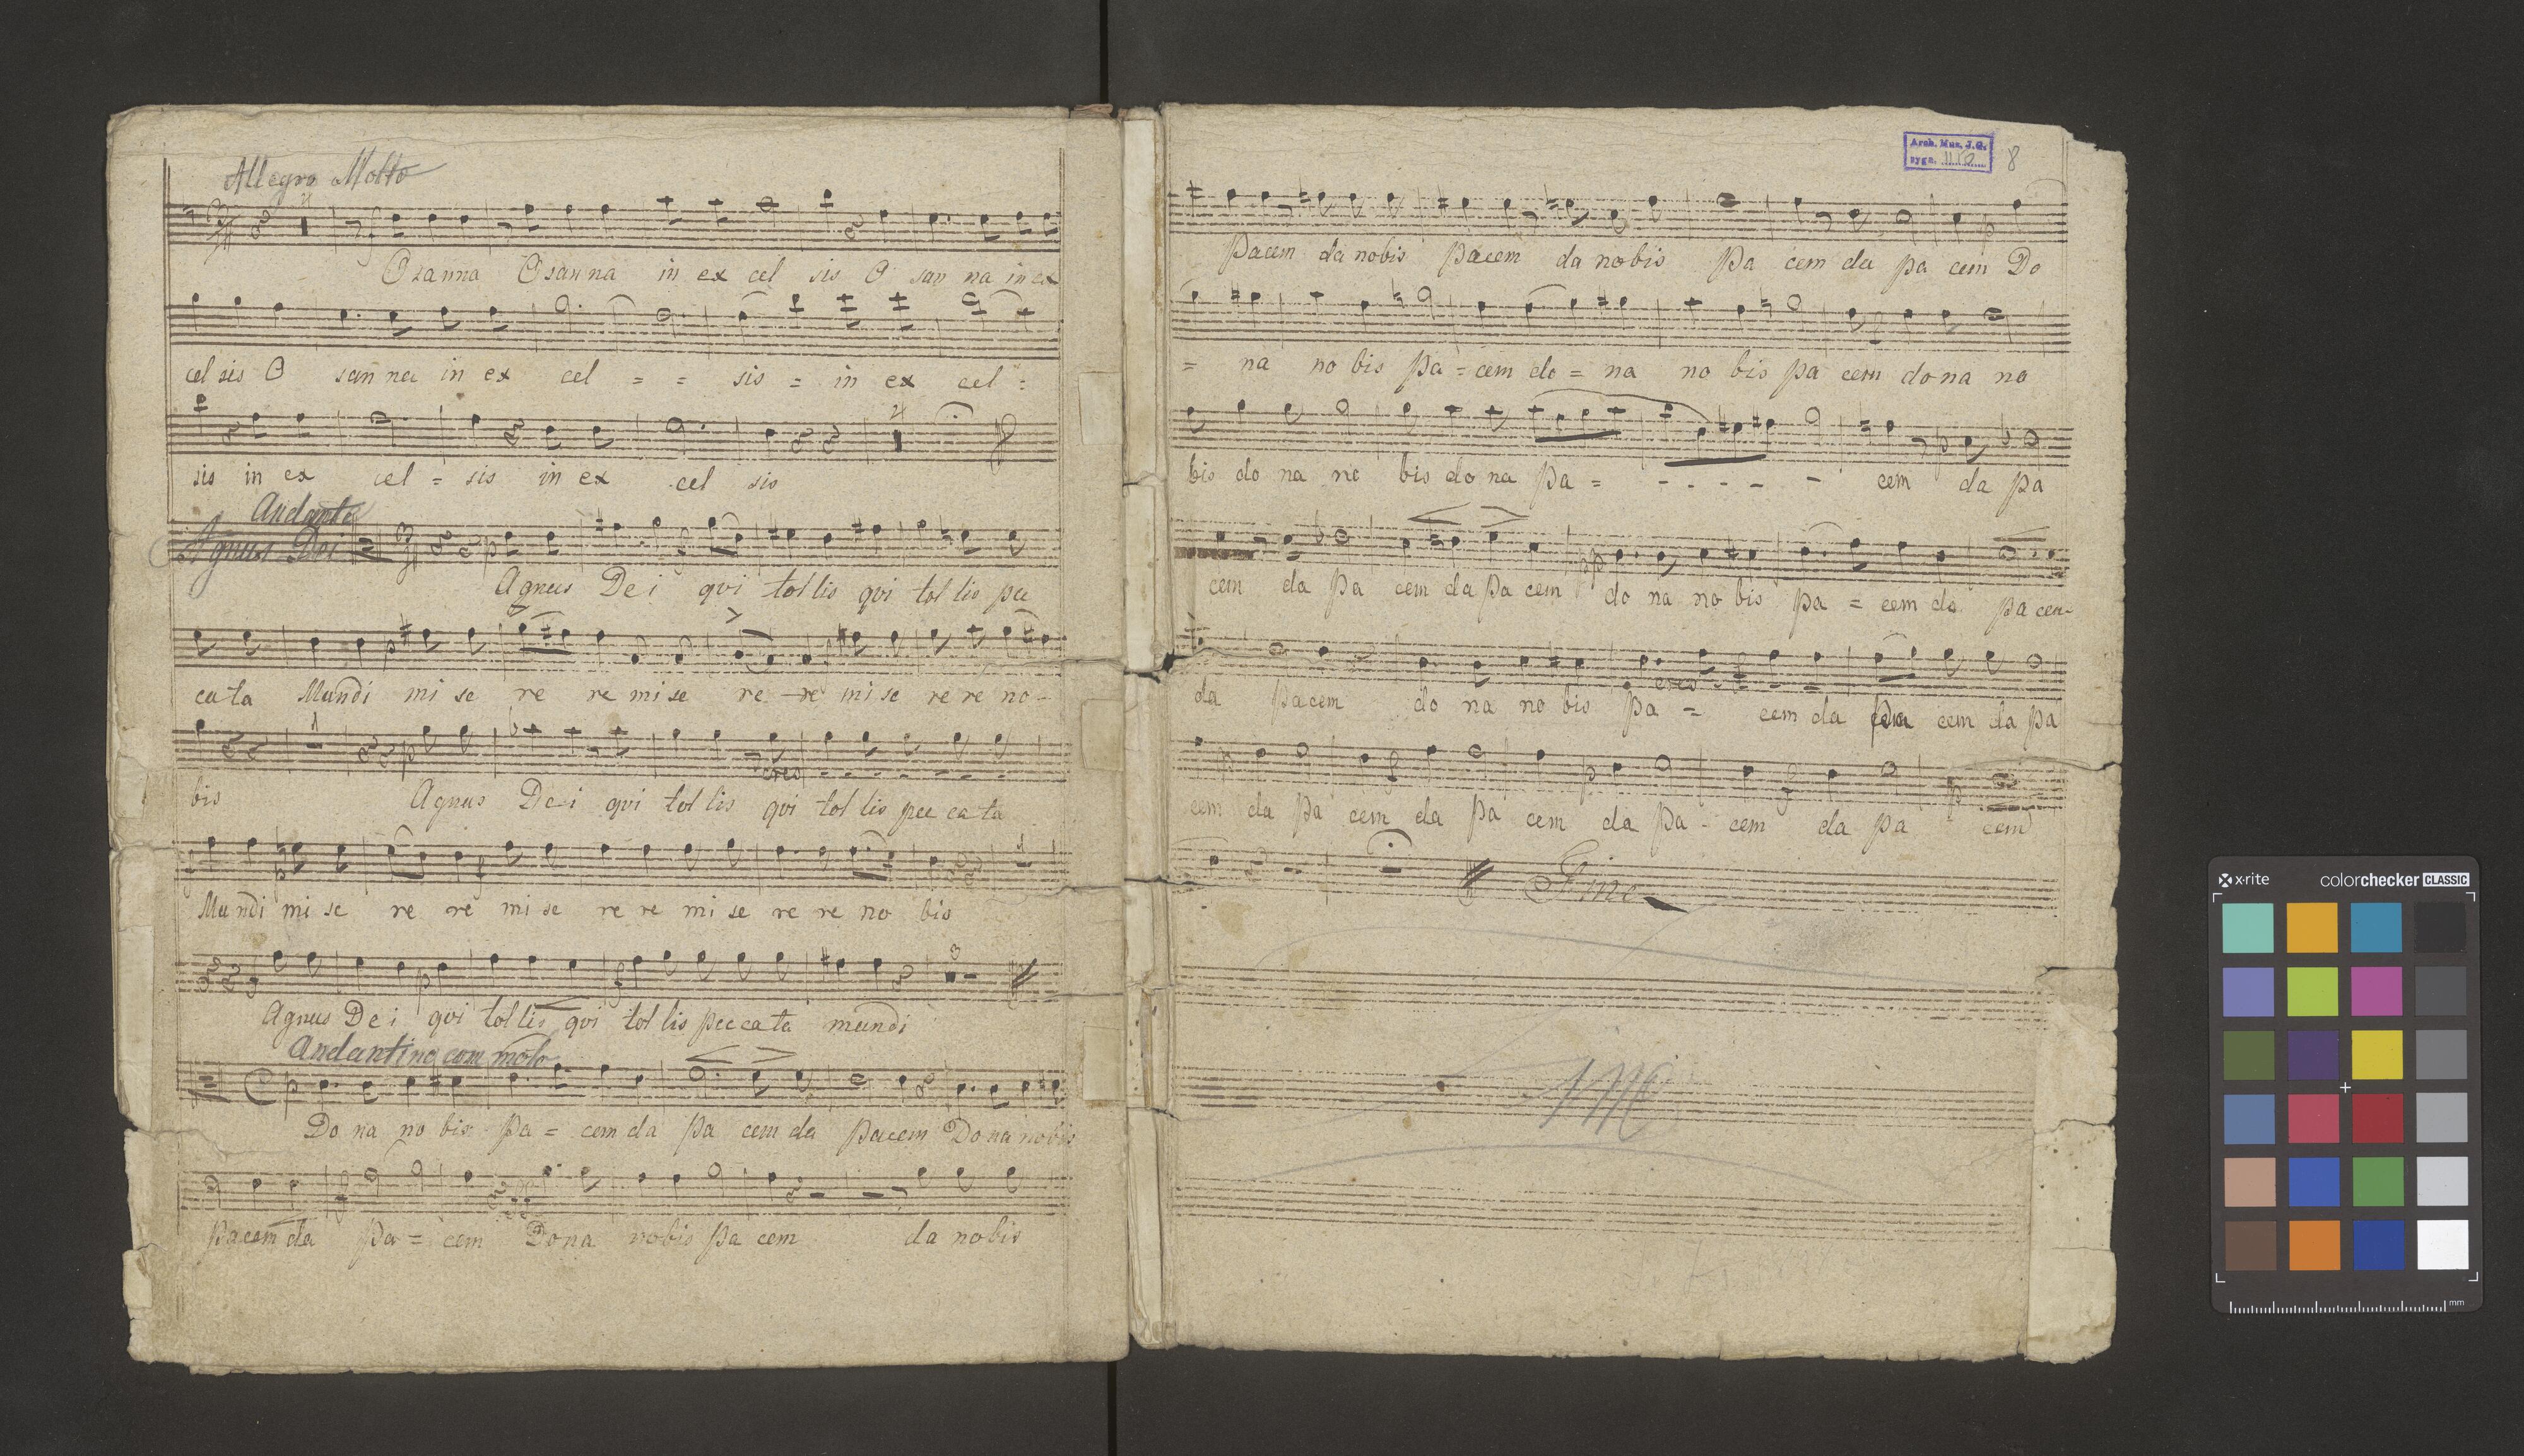 Allegro Molto
Osanna Osanna in ex cel sis O san na in ex
cel sis O san na in ex cel = = sis = in ex cel =
sis in ex cel = sis in ex cel sis
Andante
Agnus Dei
Agnus De i qvi tol lis qvi tol lis pec
ca ta Mundi mi se re re mi se re - re mi se re re no -
bis Agnus De i qvi tol lis qvi tol lis pec ca ta
cres
Mundi mi se re re mi se re re mi se re re no bis
Agnus De i qvi tol lis qvi tol lis pec ca ta mundi
Andantino com moto
Do na no bis Pa = cem da pa cem da pacem Do na nobis
pacem da Pa = cem Dona nobis pa cem da nobis
Arch. Muz. J.G.
sygn.
8
Pacem da nobis Pacem da nobis Pa cem da pa cem Do
= na no bis Pa = cem do = na no bis pa cem do na no
bis do na no bis do na Pa = - - - - - cem da pa
cem da pa cem da pa cem do na no bis pa = cem da pa cem
da pacem do na no bis Pa = cem da cem da pa
cres
cem da Pa cem da Pa cem da Pa - cem da Pa cem
Fine
x·rite colorchecker CLASSIC
mm